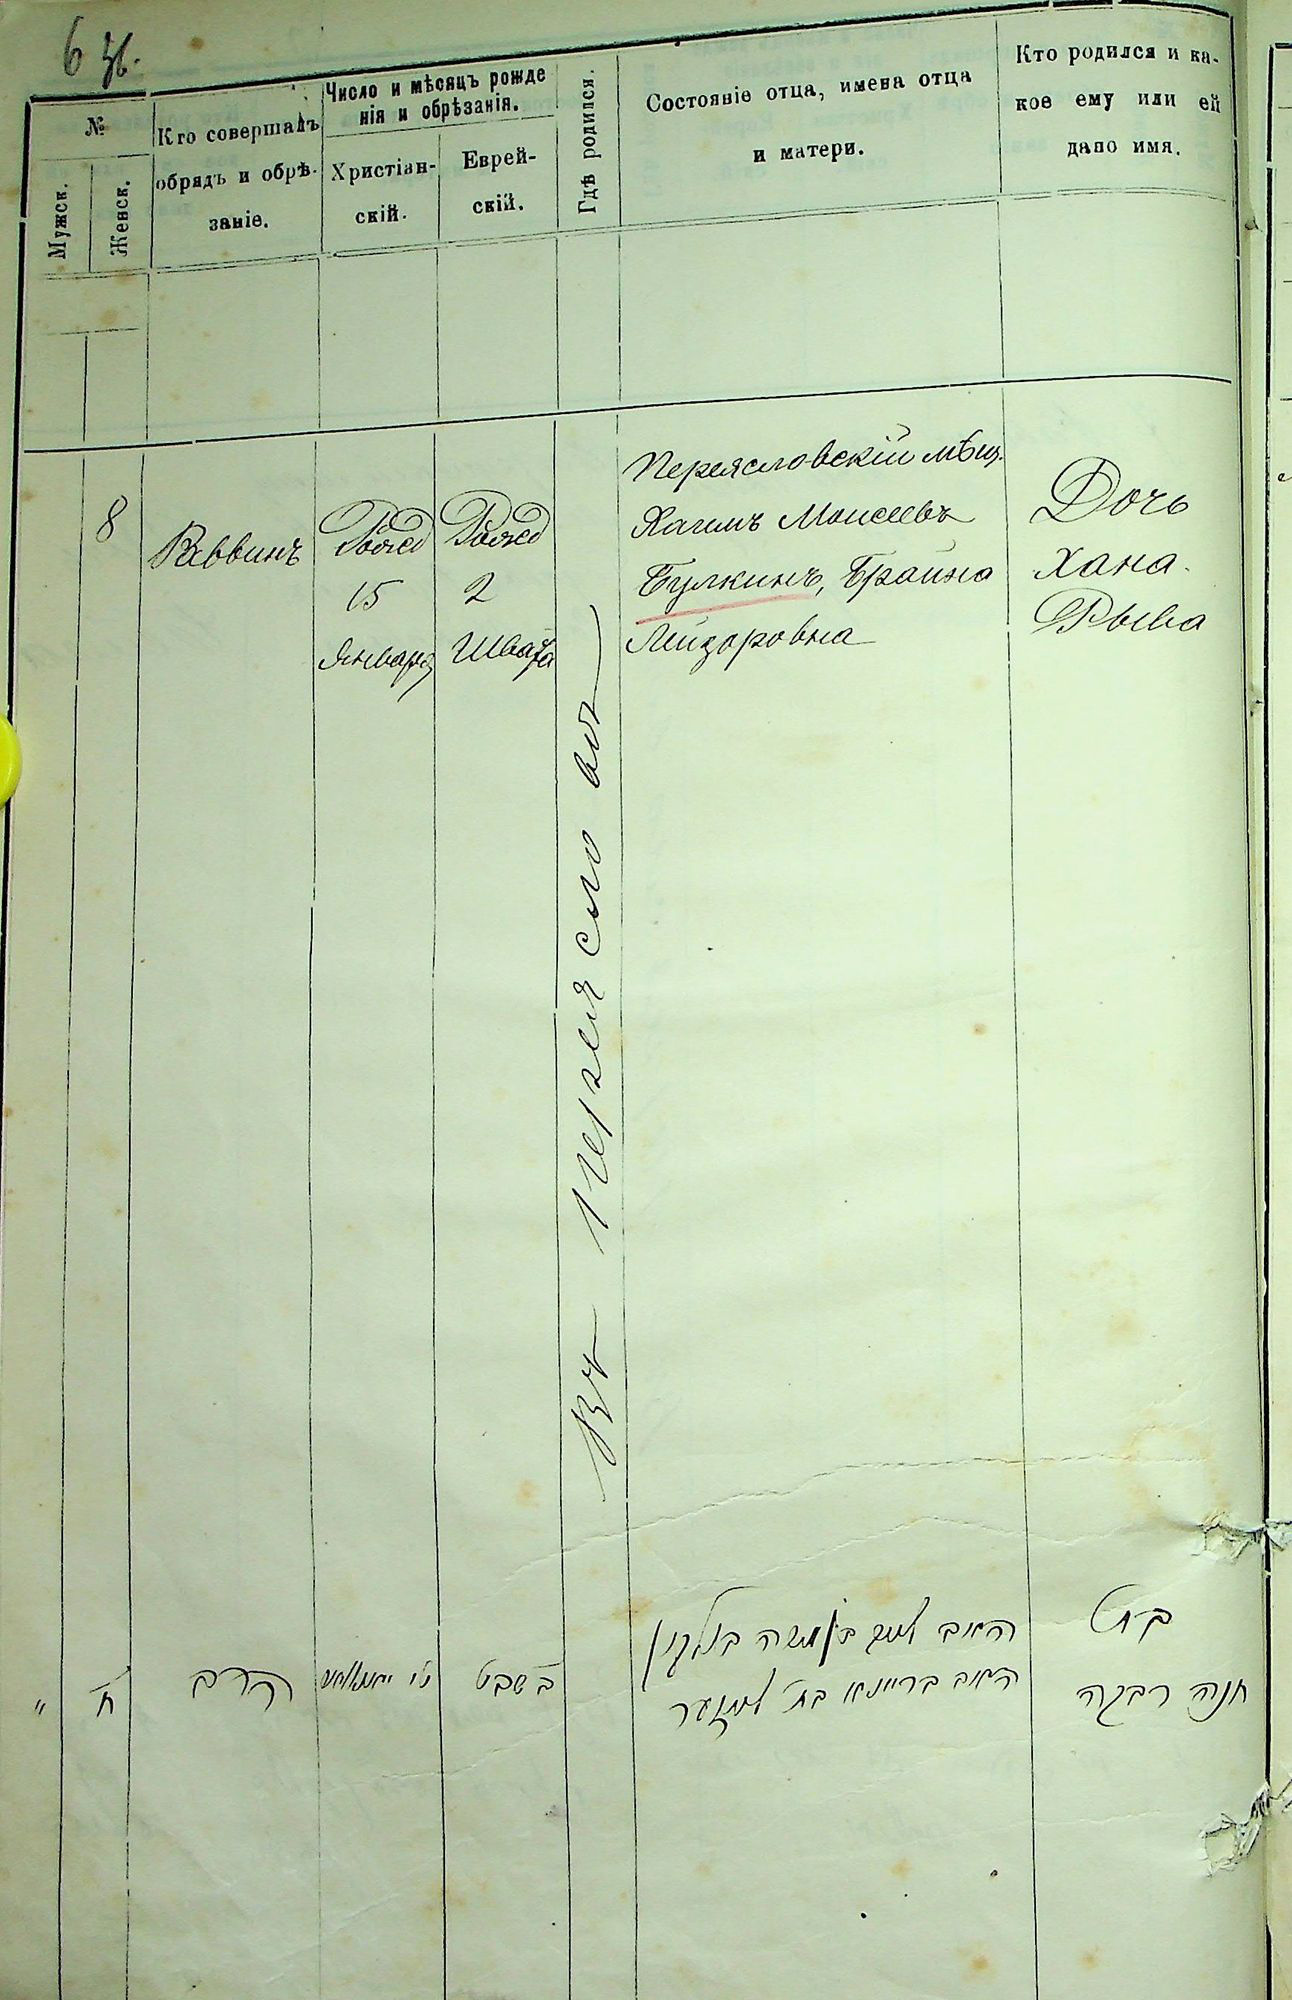 6 зв.
№
Мужск.
Женск.
Кто совершалъ
обрядъ и обрѣ-
заніе.
Число и мѣсяцъ рожде
нія и обрѣзанія.
Христіан-
скій.
Еврей-
скій.
Гдѣ родился.
Состояніе отца, имена отца
и матери.
Кто родился и ка-
кое ему или ей
дано имя.
8
Раввинъ
Рожд
15
Января
Рожд
2
Швата
Въ Переясловѣ
Переясловскій мѣщ.
Хаимъ Моисеевъ
Булкинъ, Брайна
Лейзоровна
Дочь
Хана-
Рыва
"
ח
הרב
ב שבט
האב חיים בן משה בולקין
האם בריינא בת לייזער
בת
חנה רבקה